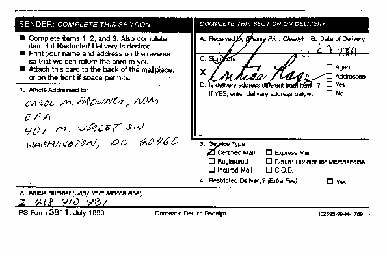 SENDER: COMPLETE THIS SECTION
Complete items 1, 2, and 3. Also complete
item 4 if Restricted Delivery is desired.
Print your name and address on the reverse
so that we can return the card to you.
Attach this card to the back of the mailpiece,
or on the front if space permits.
1. Article Addressed to:
CAROL M. BROWNER, ADM
EPA
401 M. STREET SW
WASHINGTON, DC 20460
2. Article Number (Copy from service label)
PS Form 3811, July 1999
Domestic Return Receipt
COMPLETE THIS SECTION ON DELIVERY
A. Received by (Please Print Clearly)
B. Date of Delivery
C. Signature
X
Agent
Addressee
D. Is delivery address different from item 1?
Yes
If YES, enter delivery address below:
No
3. Service Type
Certified Mail
Express Mail
Registered
Return Receipt for Merchandise
Insured Mail
C.O.D.
4. Restricted Delivery? (Extra Fee)
Yes